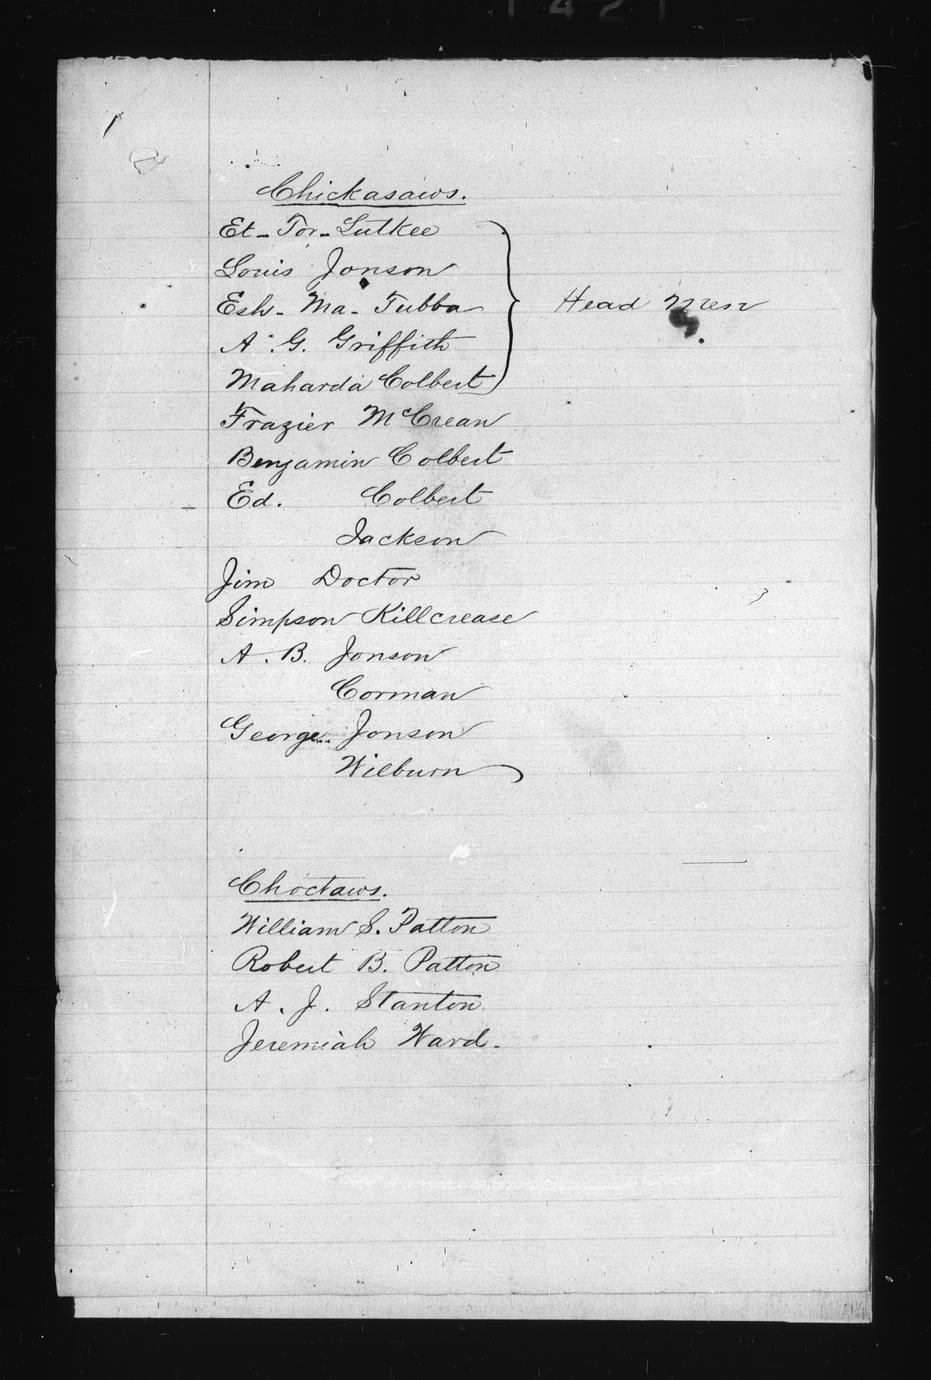 Chickasaws.
Et-Tor-Lutkee
Louis Jonson
Esh-Ma-Tubba
Head Men
A. G. Griffith
Maharda Colbert
Frazier McCrean
Benjamin Colbert
Ed. Colbert
Jackson
Jim Doctor
Simpson Killcrease
A. B. Jonson
Corman
George Jonson
Wilburn
Choctaws.
William S. Patton
Robert B. Patton
A. J. Stanton
Jeremiah Ward.